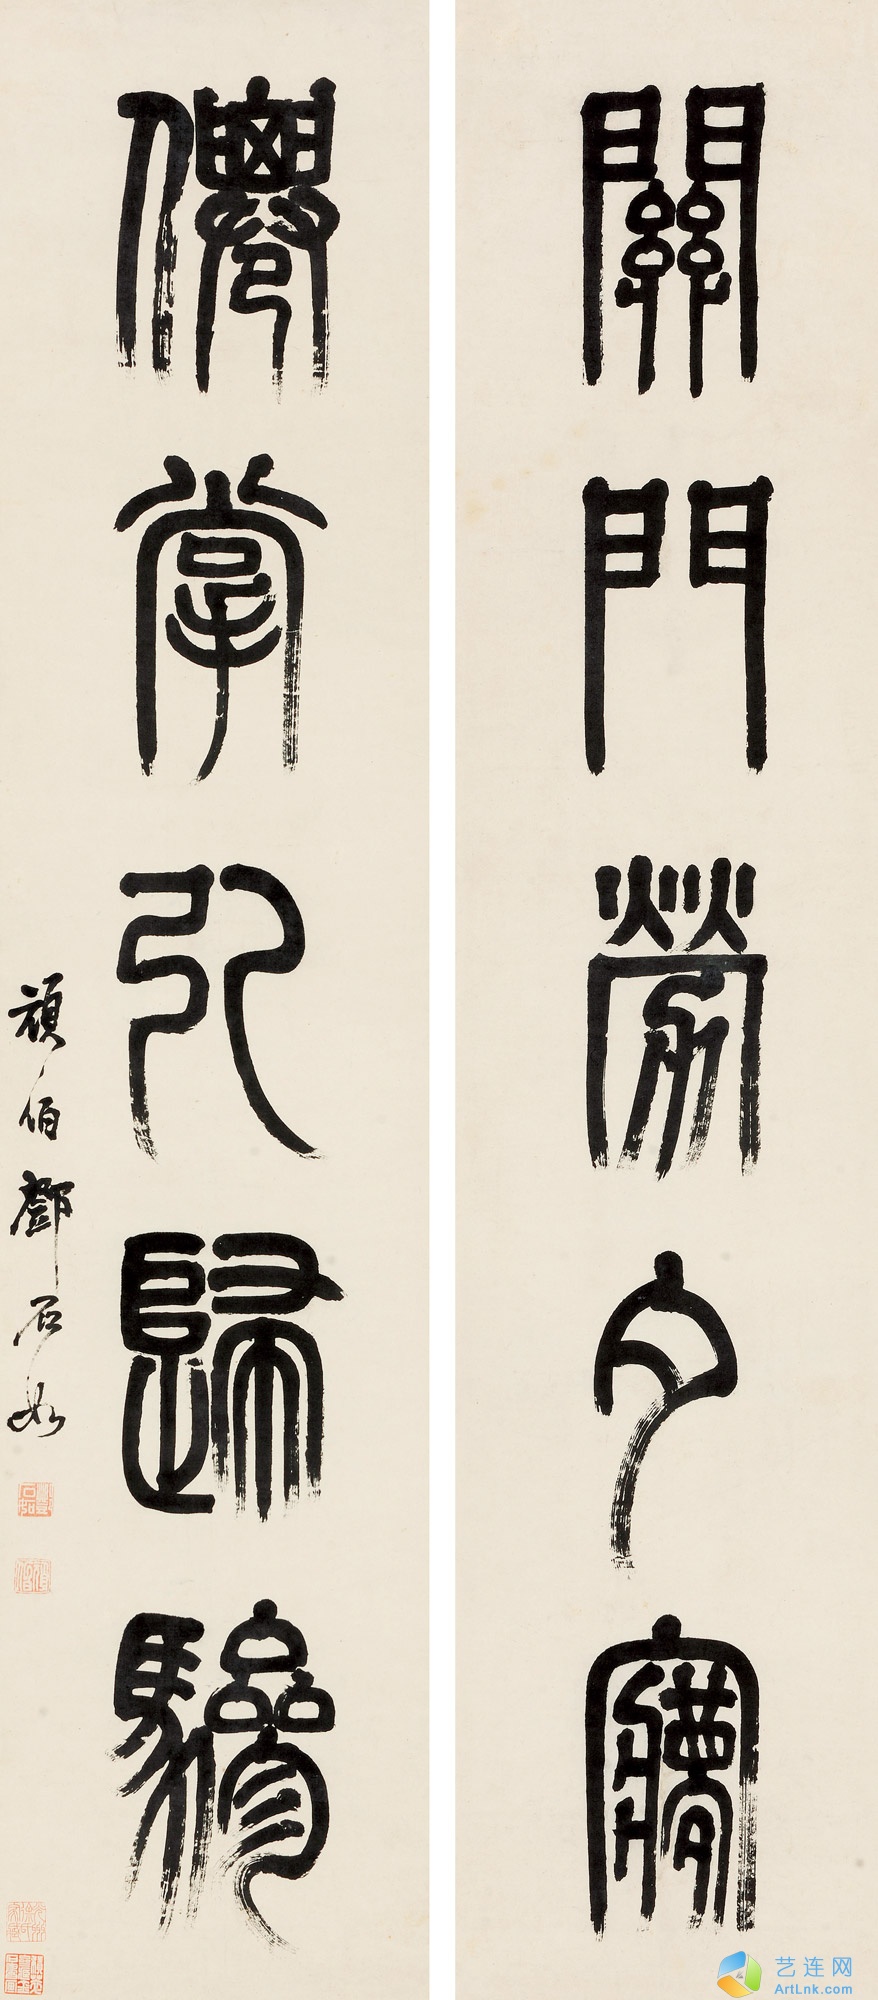 關門勞夕㝱
僊掌引歸驂
頑伯鄧石如
艺连网
ArtLnk.com